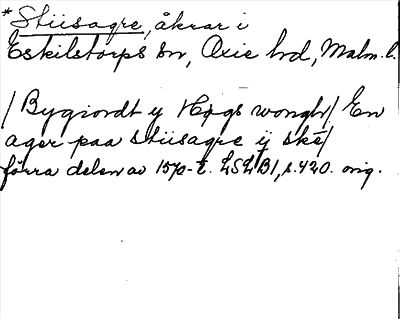 *Stiisagre, åkrar i
Eskilstorps sn, Oxie hd, Malm. l.
/Bygiordt y Høgs wongh/ En
ager paa stiisagre ij ske/
förra delen av 1570-t. LSLB1, s. 420. orig.